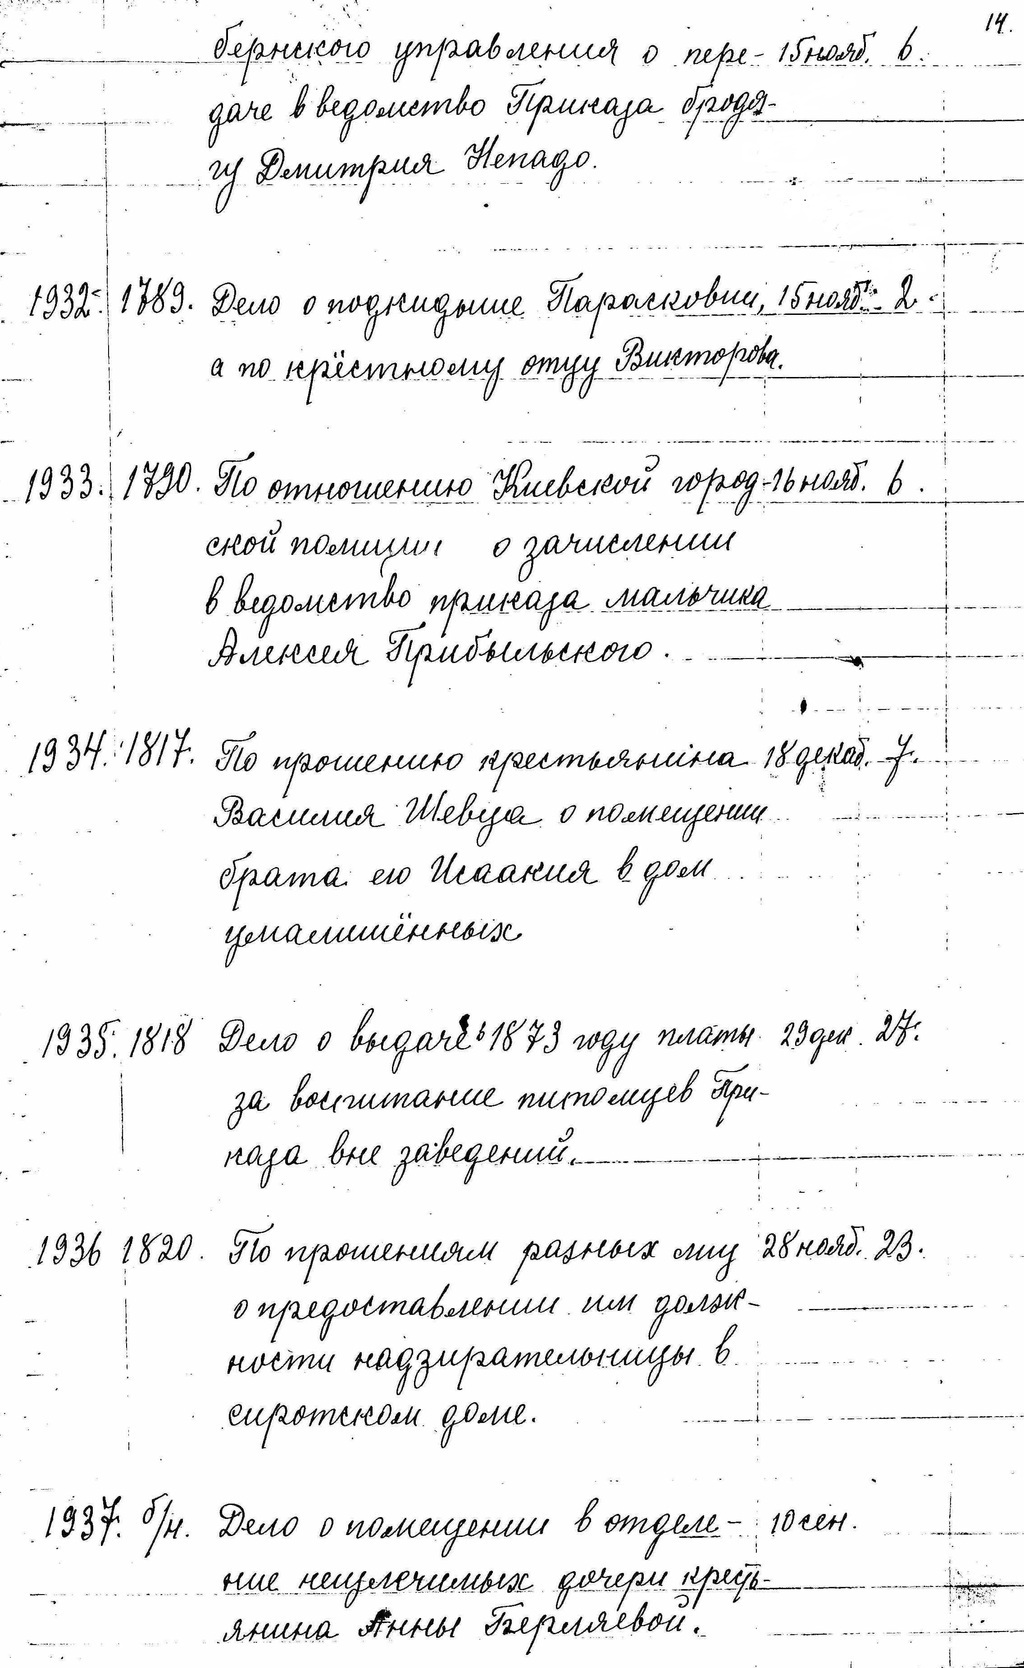 14.
бернского управления о пере- 15 нояб. 6.
даче в ведомство Приказа бродя-
гу Дмитрия Непадо.
1932. 1789. Дело о подкидыше Парасковии, 15 нояб. 2.
а по крёстному отцу Викторова.
1933. 1790. По отношению Киевской город- 16 нояб. 6.
ской полиции о зачислении
в ведомство приказа мальчика
Алексея Прибыльского.
1934. 1817. По прошению крестьянина 18 декаб. 7.
Василия Шевца о помещении
брата его Исаакия в дом
умалишённых
1935. 1818 Дело о выдаче в 1873 году платы 29 дек. 27.
за воспитание питомцев При-
каза вне заведений.
1936 1820. По прошениям разных лиц 28 нояб. 23.
о предоставлении им долж-
ности надзирательницы в
сиротском доме.
1937. б/н. Дело о помещении в отделе- 10 сен.
ние неизлечимых дочери кресть-
янина Анны Берляевой.